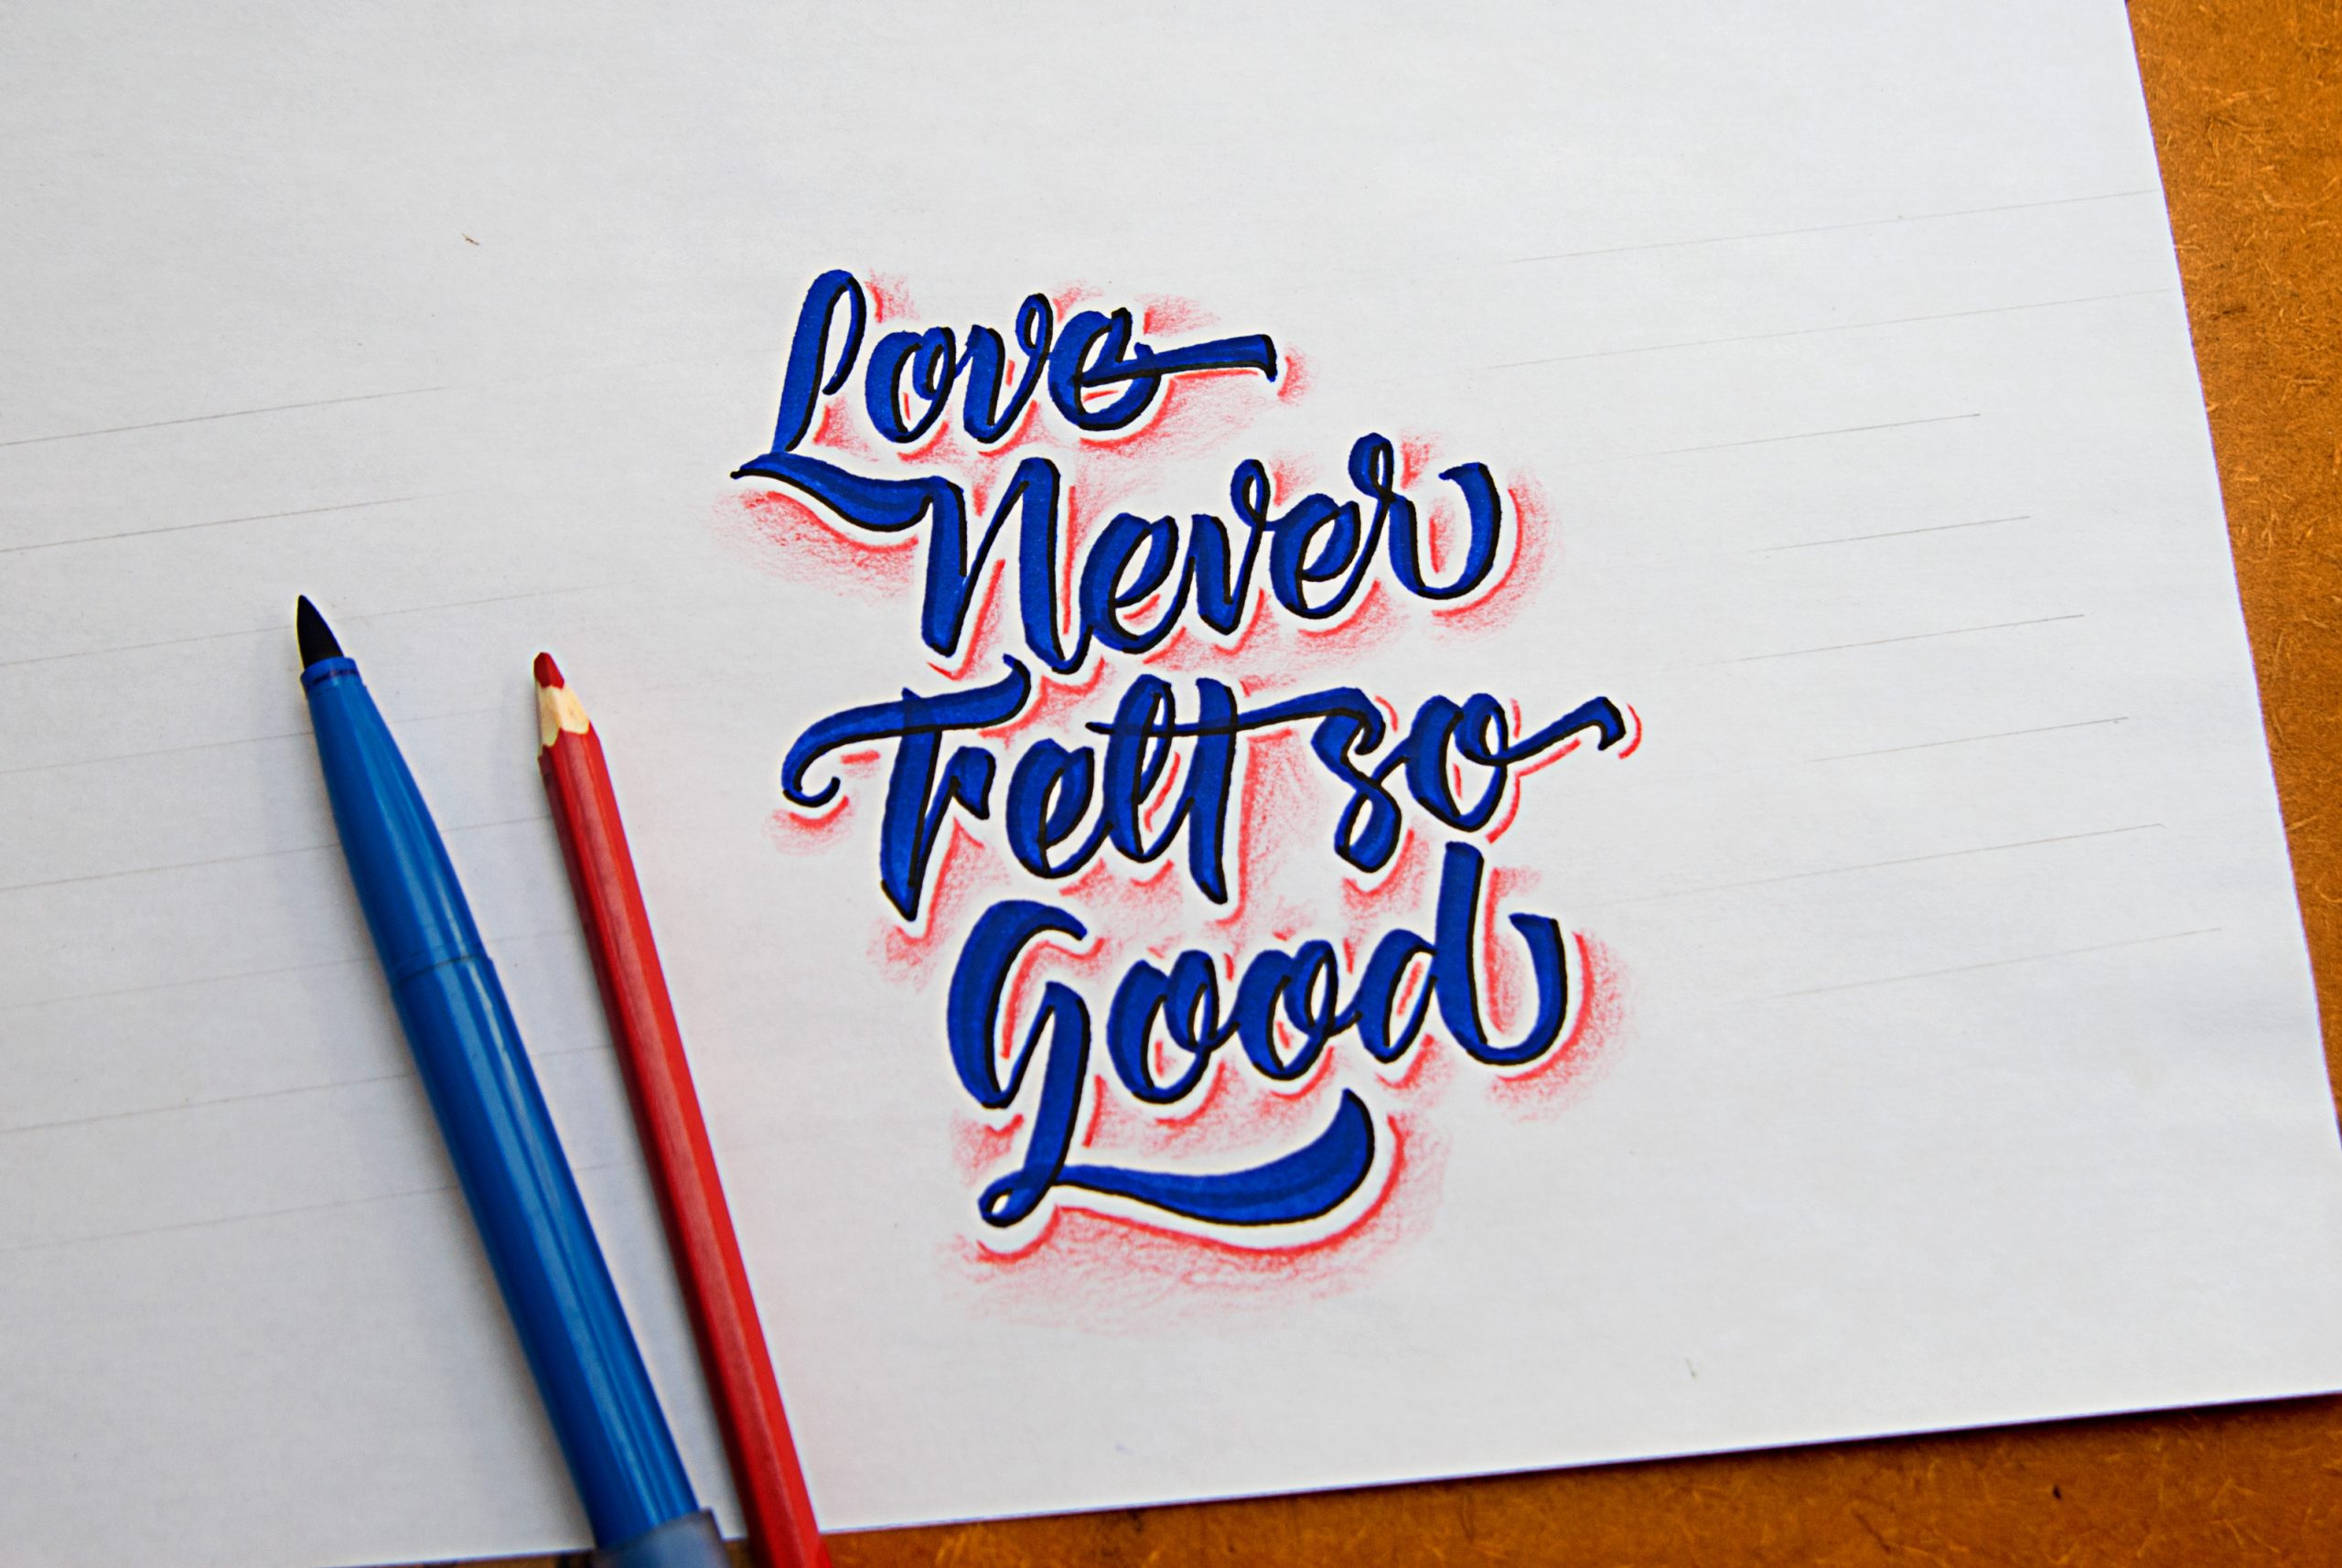 Love
Never
Felt so
Good